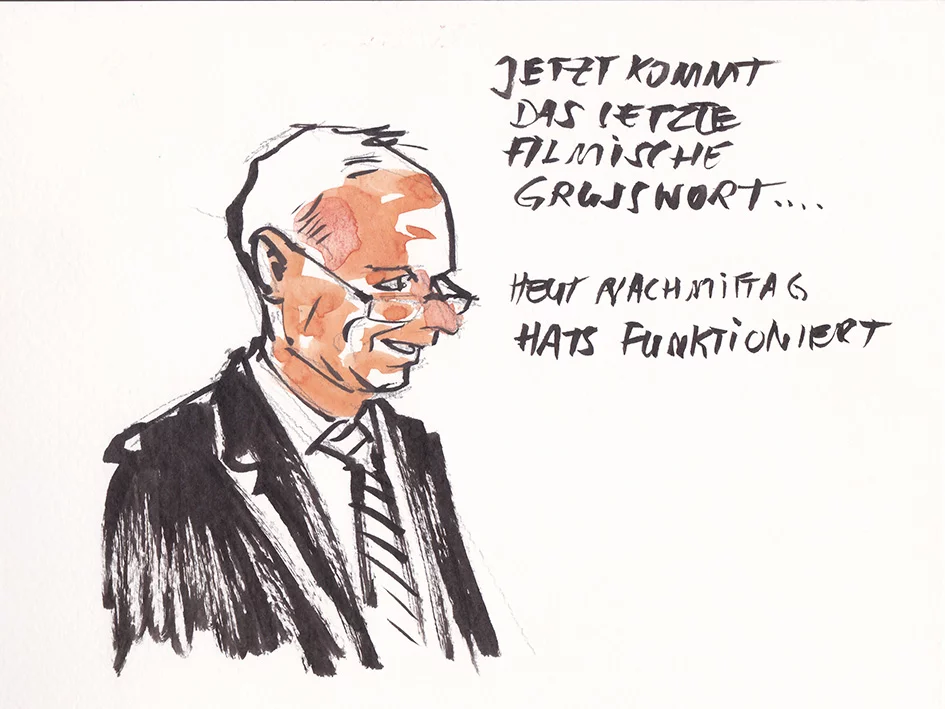 JETZT KOMMT
DAS LETZTE
FILMISCHE
GRUSSWORT....
HEUT NACHMITTAG
HATS FUNKTIONIERT